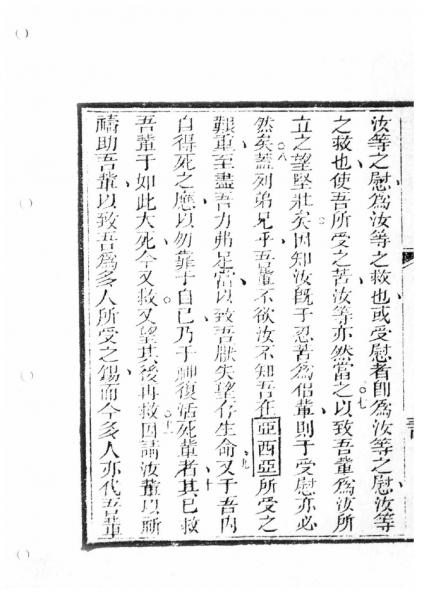 汝等之慰爲汝等之救也或受慰者卽爲汝等之慰汝等
之救也使吾所受之苦汝等亦然當之以致吾輩爲汝所七
立之望堅壯矣因知汝旣于忍苦爲侶輩則于受慰亦必
然矣八蓋列弟兄乎吾輩不欲汝不知吾在亞西亞所受之
艱重至盡吾力弗足當以致吾厭失望存生命九又于吾內
自得死之應以勿靠于自己乃于卹復活死輩者十其已救
吾輩于如此大死今又救又望其後再救十一因請汝輩以祈
禱助吾輩以致吾爲多人所受之錫而今多人亦代吾輩